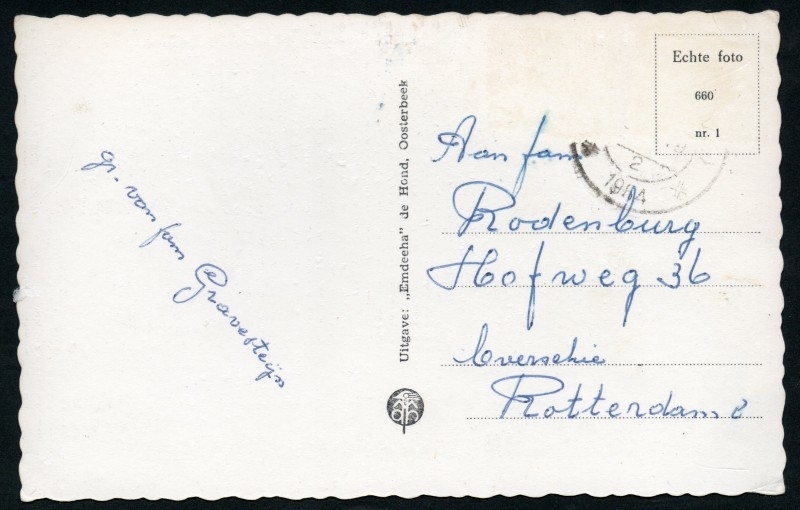 gr. van fam Gravesteijn
Uitgave: „Emdeeha” de Hond, Oosterbeek
Echte foto
660
nr. 1
2
Aan fam
Rodenburg
Hofweg 36
Overschie
Rotterdam